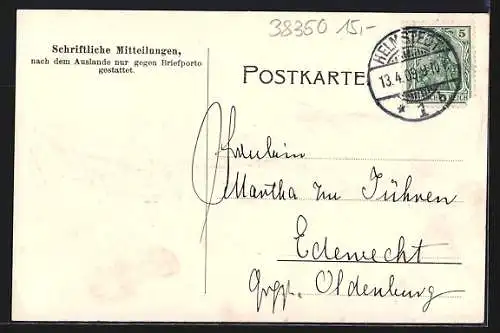 38350 15,-
Schriftliche Mitteilungen,
nach dem Auslande nur gegen Briefporto
gestattet.
POSTKARTE
5
HELMSTEDT
13.4.09.
* 1 b
Fräulein
Martha zu Jühren
Edewecht
Grhzgt. Oldenburg